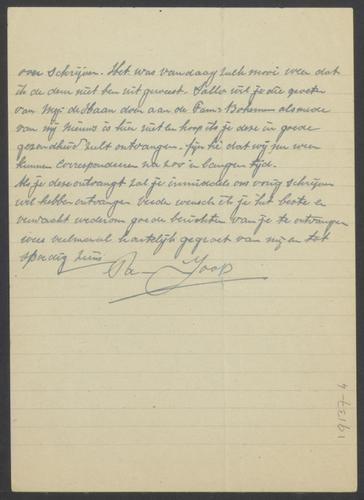 over schrijven. Het was vandaag zulk mooi weer dat
ik de deur niet ben uit geweest. wil je die groeten
van Mej. de Haan doen aan de Fam: Bohemen alsmede
van mij nieuws is hier niet en hoop ik je deze in goede
gezondheid zult ontvangen. Fijn hé dat wij nu weer
kunnen corresponderen na zoo'n langen tijd.
Als je deze ontvangt zal je inmiddels ons vorig schrijven
wel hebben ontvangen verder wensch ik je het beste en
verwacht wederom goede berichten van je te ontvangen
wees veelmaal hartelijk gegroet van mij en tot
spoedig ziens
Pa Joop
19137-4